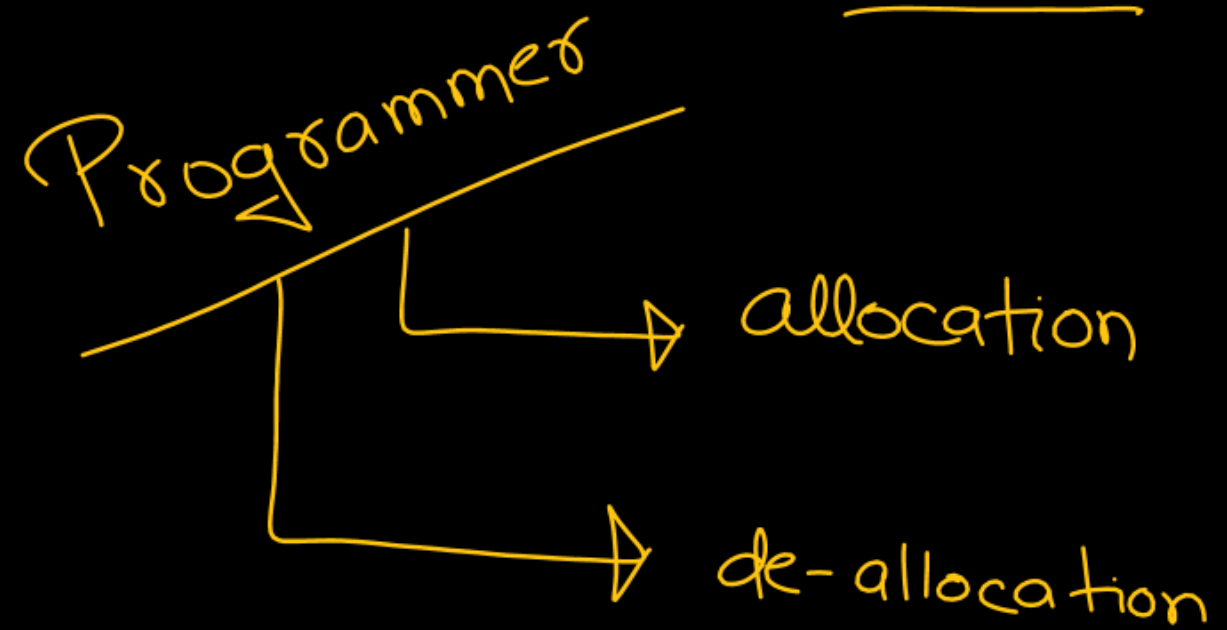 Programmer
allocation
de-allocation